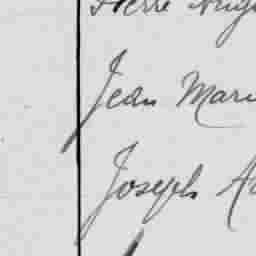 Pierre
Jean Mari
Joseph